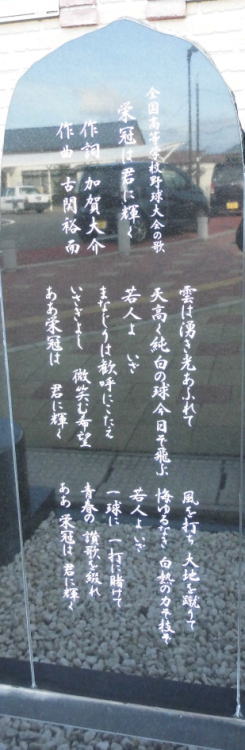 全国高等学校野球大会の歌
栄冠は君に輝く
作詞 加賀大介
作曲 古関裕而
雲は湧き光あふれて
天高く純白の球今日ぞ飛ぶ
若人よ いざ
まなじりは歓呼にこたえ
いさぎよし 微笑む希望
ああ栄冠は 君に輝く
風を打ち 大地を蹴りて
悔ゆるなき 白熱の力ぞ技ぞ
若人よ いざ
一球に 一打に賭けて
青春の 讃歌を綴れ
ああ 栄冠は 君に輝く